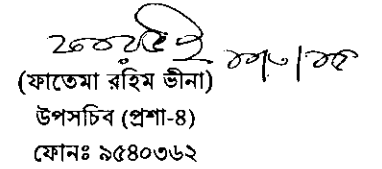 (ফাতেমা রহিম ভীনা)
উপসচিব (প্রশা-৪)
ফোনঃ ৯৫৪০৩৬২